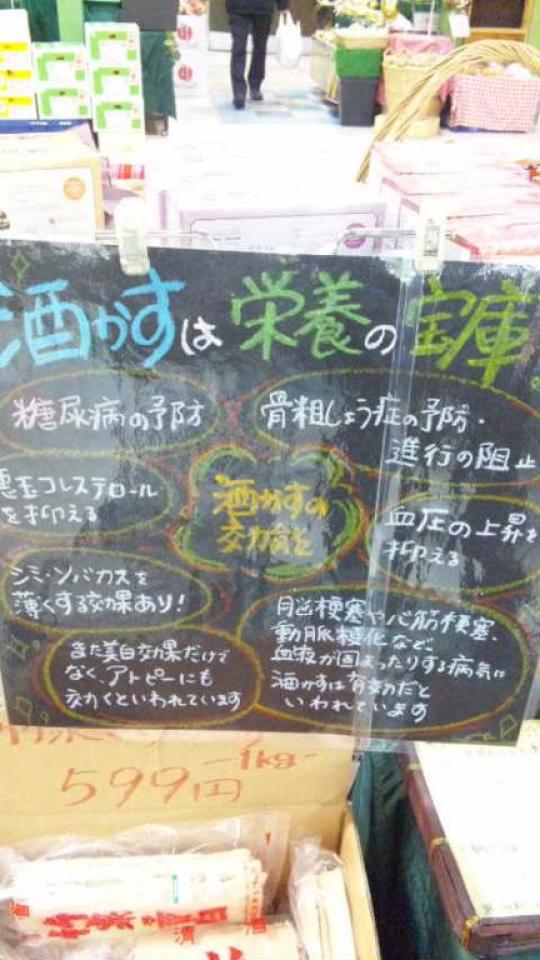 酒かすは栄養の宝庫
糖尿病の予防
骨粗しょう症の予防・
進行の阻止
悪玉コレステロール
を抑える
酒かすの
効能と
血圧の上昇を
抑える
シミ・ソバカスを
薄くする効果あり!
脳梗塞や心筋梗塞、
動脈硬化など、
血液が固まったりする病気に
酒かすは有効だと
いわれています
また美白効果だけで
なく、アトピーにも
効くといわれています
-1kg-
599円